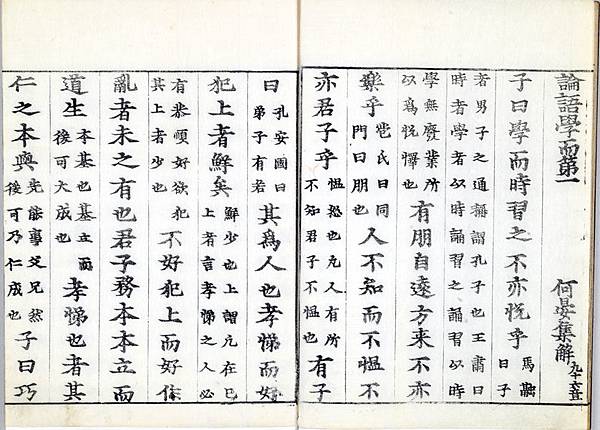 論語學而第一 何晏集解 凡十六章
子曰學而時習之不亦悅乎 馬融曰子
者男子之通稱謂孔子也王肅曰時者學者以時誦習之誦習以時
學無廢業所以爲悅懌也 有朋自遠方來不亦
樂乎 苞氏曰同門曰朋也 人不知而不慍不
亦君子乎 慍怒也凡人有所不知君子不慍也 有子
曰 孔安國曰弟子有若 其爲人也孝悌而好
犯上者鮮矣 鮮少也上謂凡在己上者言孝悌之人必
有恭順好欲犯其上者少也 不好犯上而好作
亂者未之有也君子務本本立而
道生 本基也基立而後可大成也 孝悌也者其
仁之本與 先能事父兄然後可乃仁成也 子曰巧